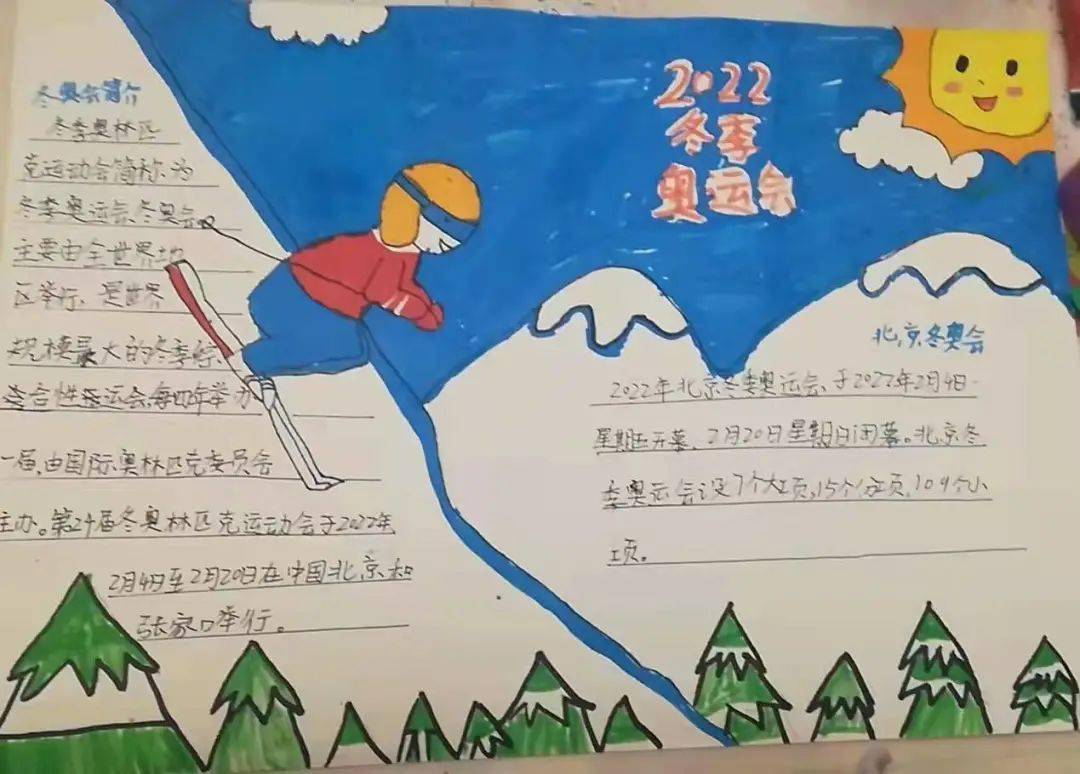 2022
冬季
奥运会
冬奥会简介
冬季奥林匹
克运动会简称为
冬季奥运会、冬奥会。
主要由全世界地
区举行,是世界
规模最大的冬季综
合性运动会,每四年举办
一届,由国际奥林匹克委员会
主办。第24届冬奥林匹克运动会于2022年
2月4日至2月20日在中国北京和
张家口举行。
北京冬奥会
2022年北京冬季奥运会,于2022年2月4日
星期五开幕,2月20日星期日闭幕。北京冬
季奥运会设7个大项,15个分项,109个小
项。